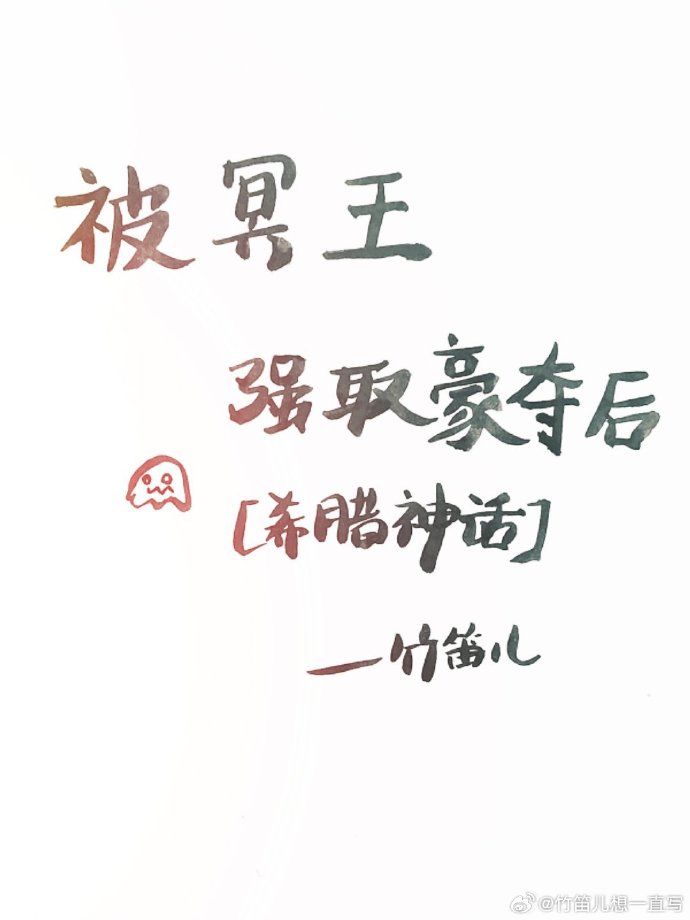 被冥王
强取豪夺后
[希腊神话]
—竹笛儿
@竹笛儿想一直写